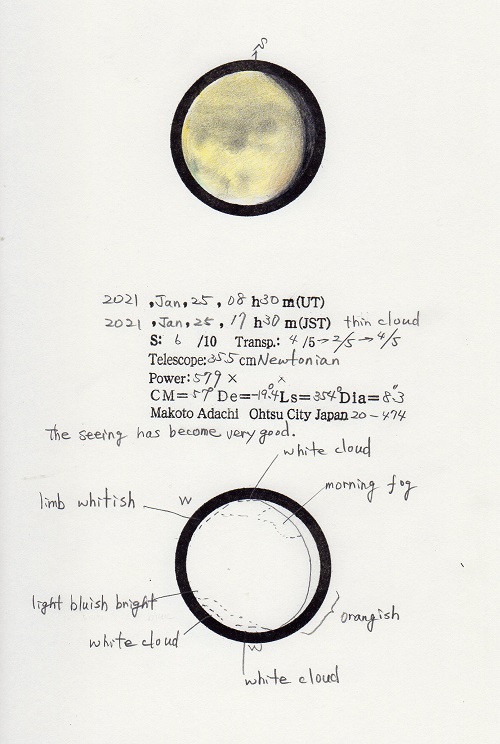 S
2021 , Jan, 25, 08 h 30 m (UT)
2021 , Jan, 25, 17 h 30 m (JST) thin cloud
S: 6 /10 Transp.: 4 /5→2/5→4/5
Telescope: 355 cm Newtonian
Power: 579 ×
CM= 57° De= -19.4° Ls= 354° Dia= 8.3"
Makoto Adachi Ohtsu City Japan 20-474
The seeing has become very good.
white cloud
morning fog
limb whitish
W
light bluish bright
orangish
white cloud
W
white cloud